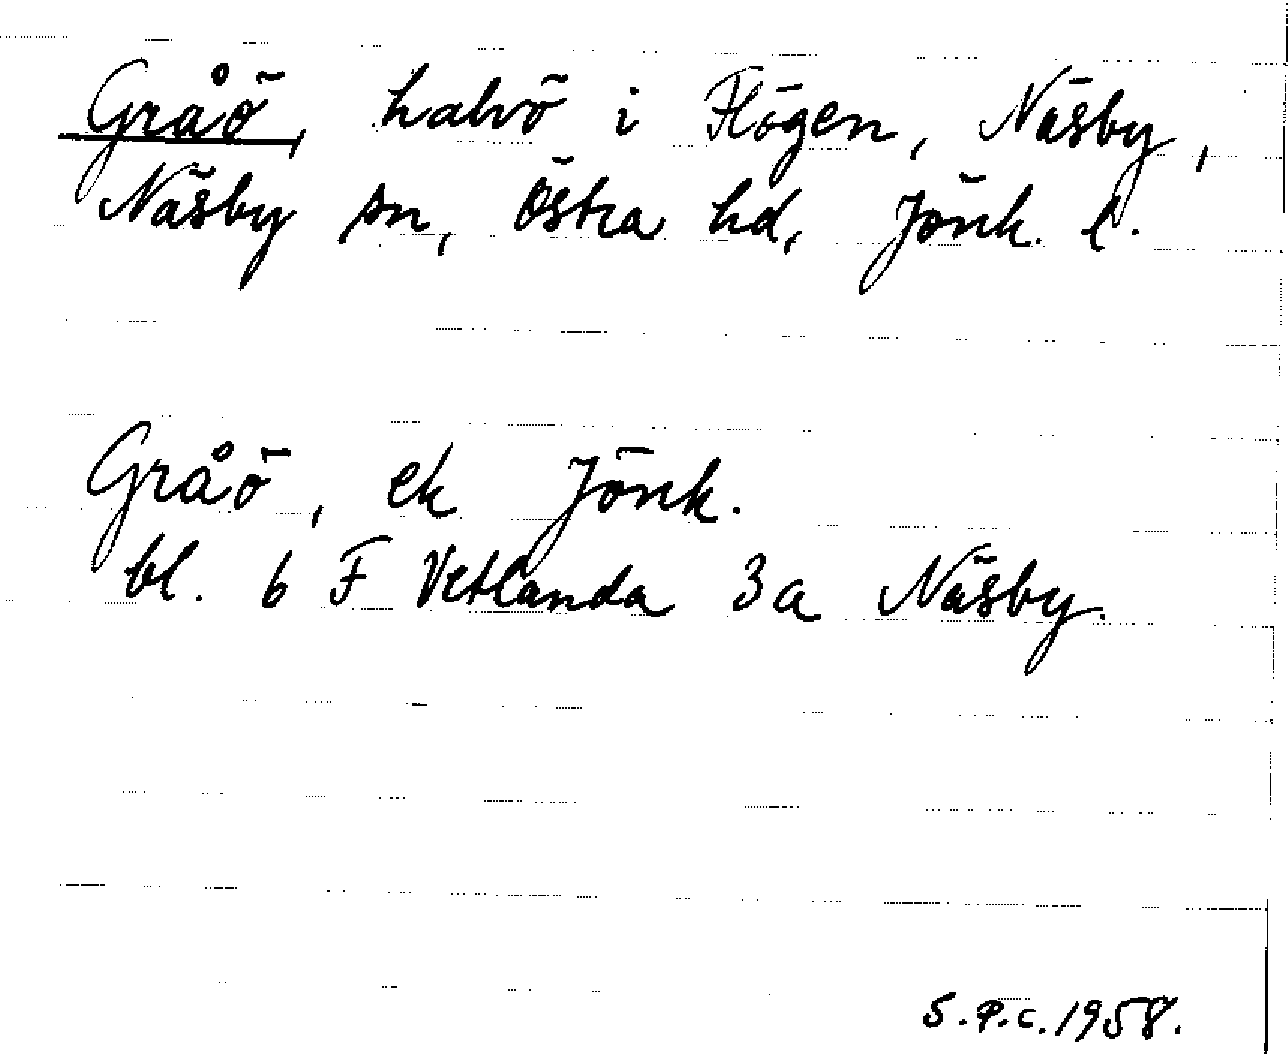 Gråö, halvö i Flögen, Näsby,
Näsby sn, Östra hd, Jönk. l.
Gråö, ek Jönk.
bl. 6 F Vetlanda 3a Näsby.
S.P.C. 1958.